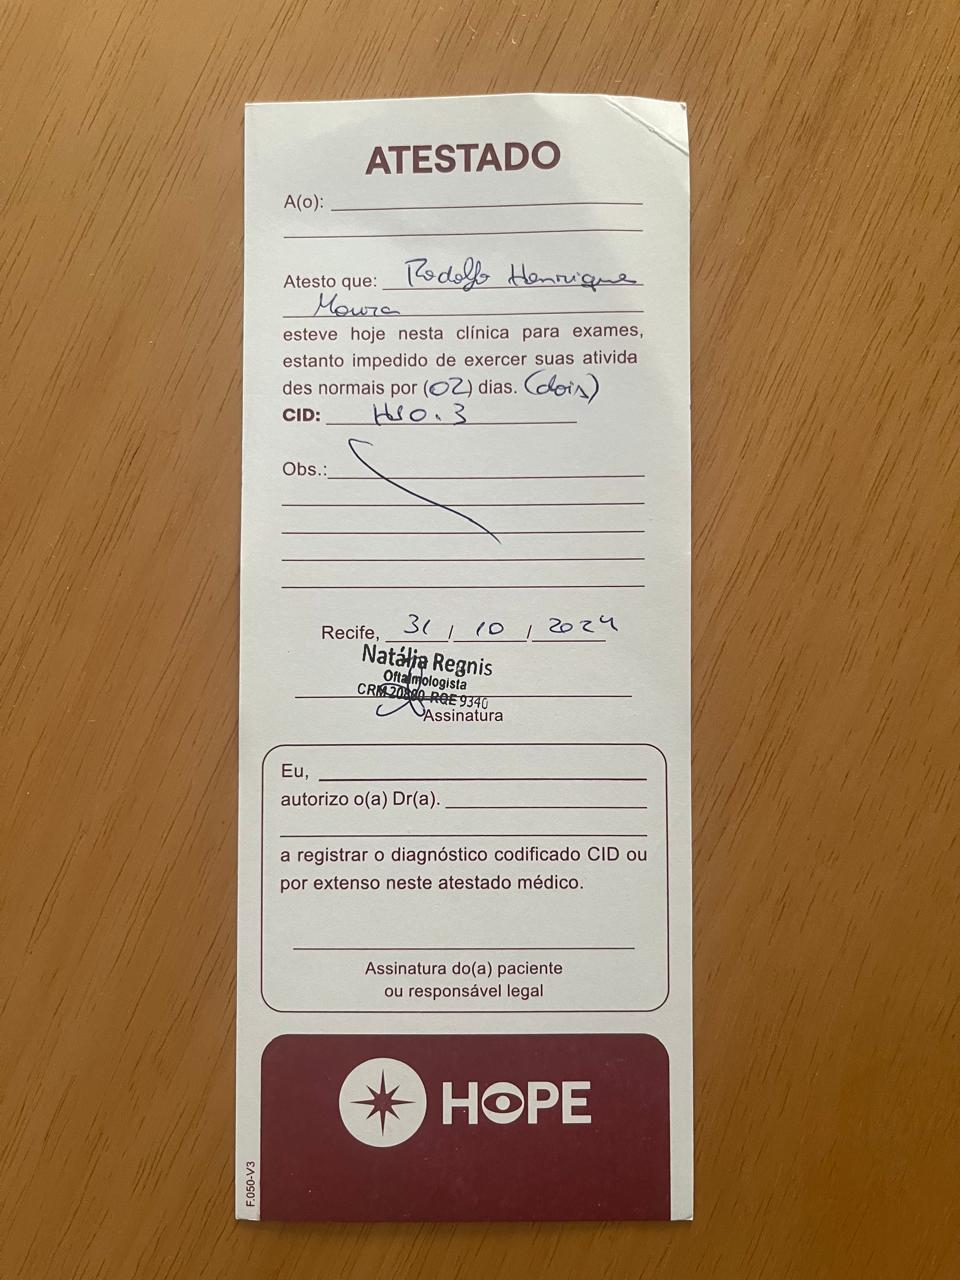 ATESTADO
A(o):
Atesto que: Rodolfo Henrique
Moura
esteve hoje nesta clínica para exames,
estanto impedido de exercer suas ativida
des normais por (02) dias. (dois)
CID: H10.3
Obs.:
Recife, 31 / 10 / 2024
Natália Regnis
Oftalmologista
CRM RQE 9340
Assinatura
Eu,
autorizo o(a) Dr(a).
a registrar o diagnóstico codificado CID ou
por extenso neste atestado médico.
Assinatura do(a) paciente
ou responsável legal
HOPE
F.050-V3